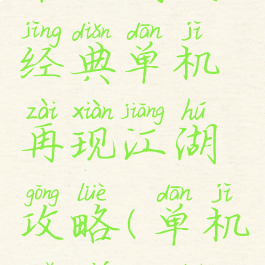 jīng diǎn dān jī
经典单机
zài xiàn jiāng hú
再现江湖
gōng lüè dān jī
攻略(单机